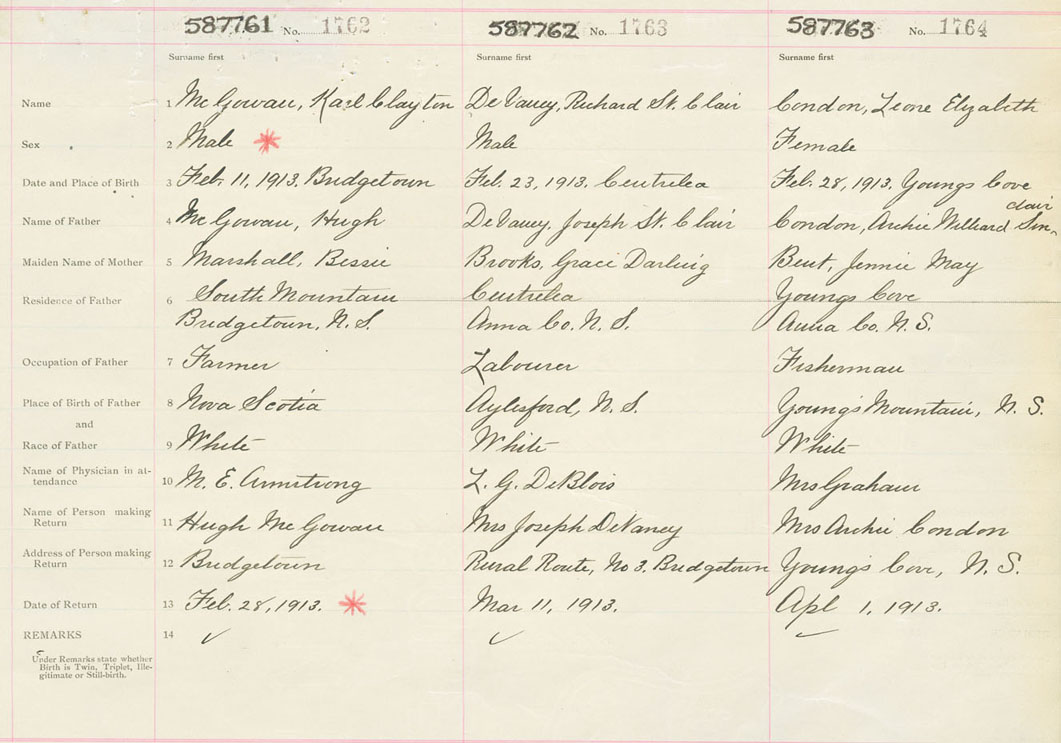 587761 No. 1762 587762 No. 1763 587763 No. 1764
Surname first Surname first Surname first
Name 1 McGowan, Karl Clayton DeVaney, Richard St. Clair Condon, Leone Elizabeth
Sex 2 Male Male Female
Date and Place of Birth 3 Feb. 11, 1913. Bridgetown Feb. 23, 1913. Centrelea Feb. 28, 1913. Youngs Cove
clair
Name of Father 4 McGowan, Hugh DeVaney, Joseph St. Clair Condon, Archie Williard Sin-
Maiden Name of Mother 5 Marshall, Bessie Brooks, Grace Darling Bent, Jennie May
Residence of Father 6 South Mountain Centrelea Youngs Cove
Bridgetown, N.S. Anna Co. N.S. Anna Co. N.S.
Occupation of Father 7 Farmer Labourer Fisherman
Place of Birth of Father 8 Nova Scotia Aylesford, N.S. Young's Mountain, N.S.
and
Race of Father 9 White White White
Name of Physician in at-
tendance 10 M. E. Armstrong L. G. DeBlois Mrs Graham
Name of Person making
Return 11 Hugh McGowan Mrs Joseph DeVaney Mrs Archie Condon
Address of Person making
Return 12 Bridgetown Rural Route, No 3. Bridgetown Young's Cove, N.S.
Date of Return 13 Feb. 28, 1913. Mar 11, 1913. Apl 1, 1913.
REMARKS 14 ✓ ✓ ✓
Under Remarks state whether
Birth is Twin, Triplet, Ille-
gitimate or Still-birth.